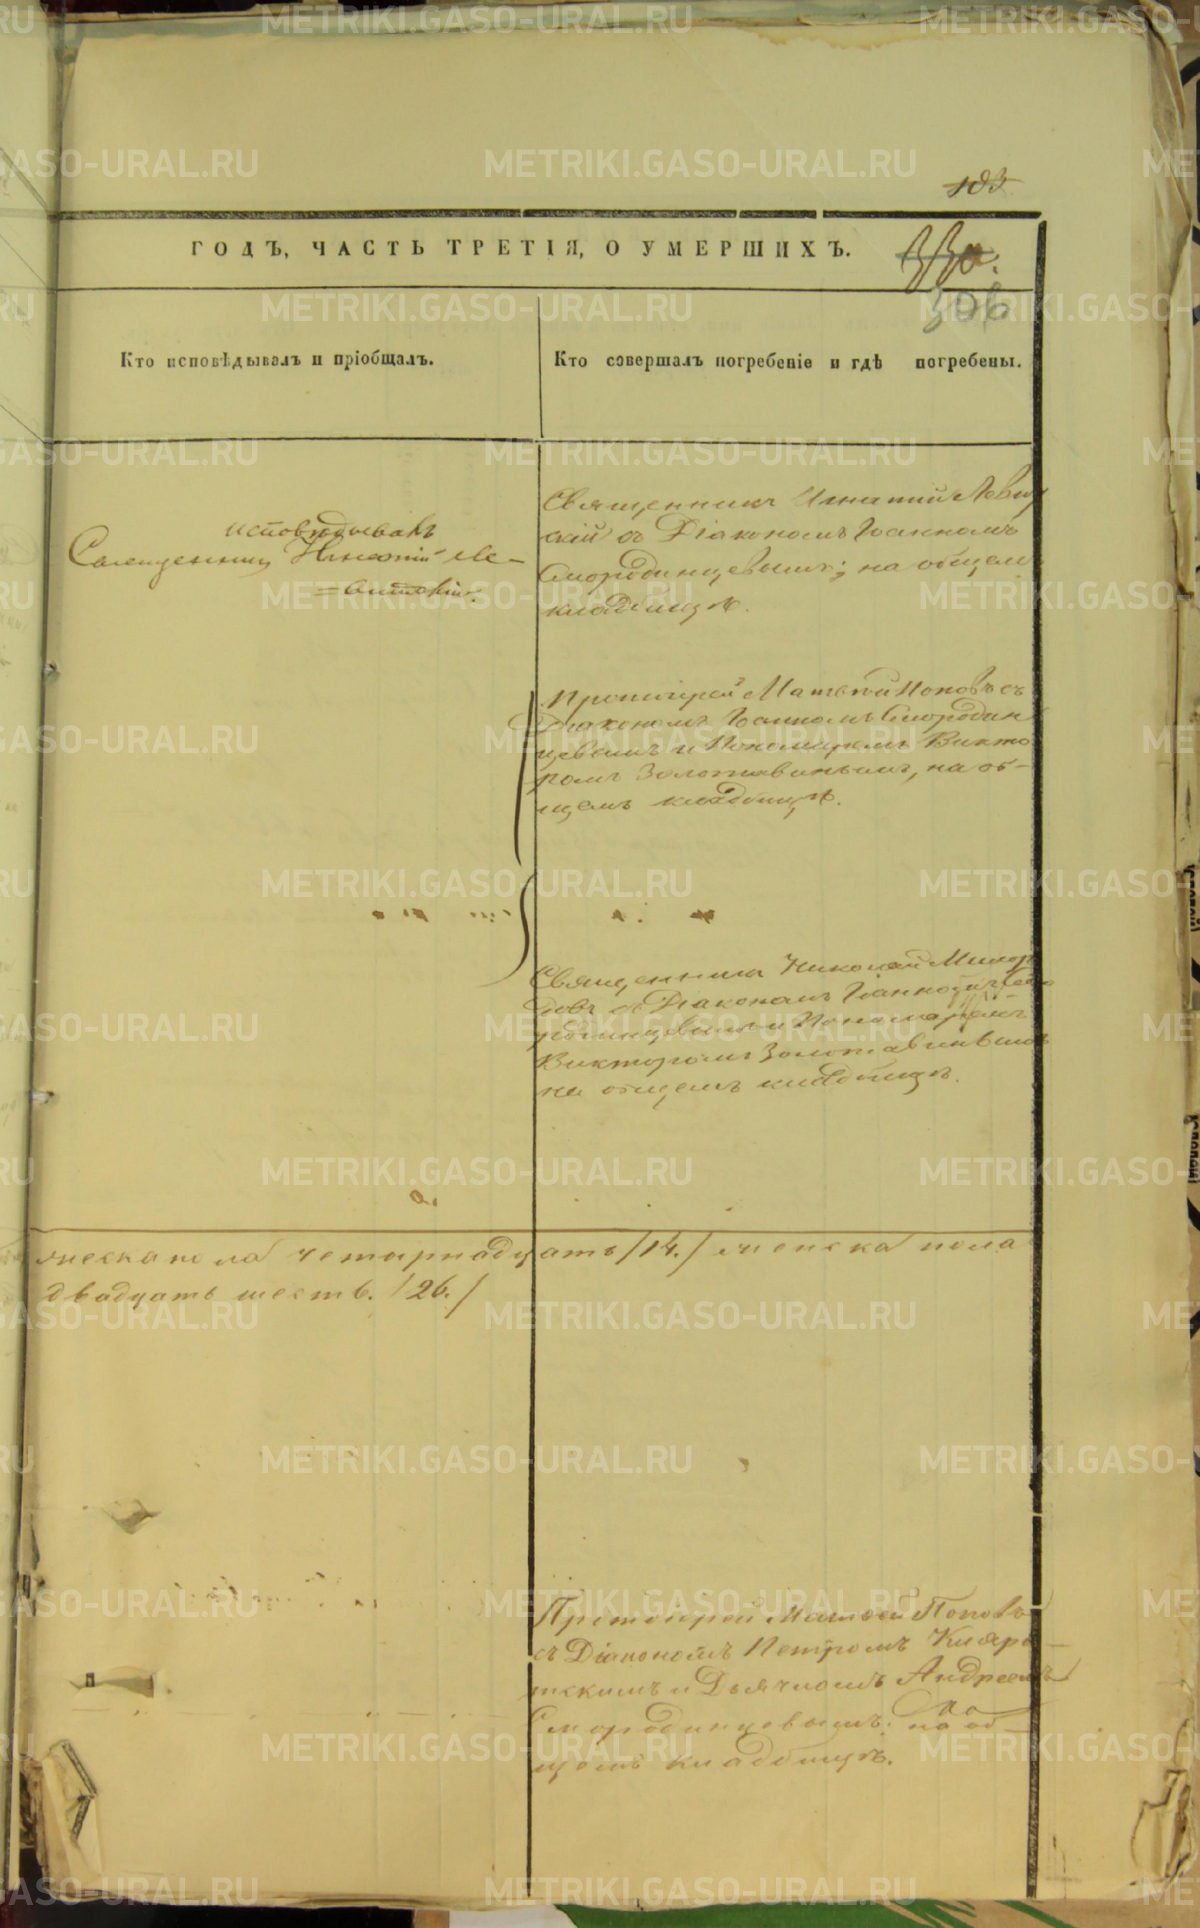 103
330.
306
ГОДЪ, ЧАСТЬ ТРЕТІЯ, О УМЕРШИХЪ.
Кто исповѣдывалъ и пріобщалъ.
Кто совершалъ погребеніе и гдѣ погребены.
исповѣдывалъ
Священникъ Игнатій Ле=
=витскій.
Священникъ Игнатій Левит
скій съ Діакономъ Іоанномъ
Смородинцевымъ; на общемъ
кладбищѣ.
Протоіерей Матѳей Поповъ съ
Діакономъ Іоанномъ Смородин
цевымъ и Пономаремъ Викто
ромъ Золотавинымъ, на об-
щемъ кладбищѣ.
Священникъ Николай
съ Діакономъ Іоанномъ
и Пономаремъ
Викторомъ Золотавинымъ
на общемъ кладбищѣ.
мужеска пола четырнадцать /14./ женска пола
двадцать шесть. /26./
Протоіерей Матѳей Поповъ
съ Діакономъ Петромъ
и Дьячкомъ Андреемъ
Смородинцевымъ. на об-
щемъ кладбищѣ.
METRIKI.GASO-URAL.RU